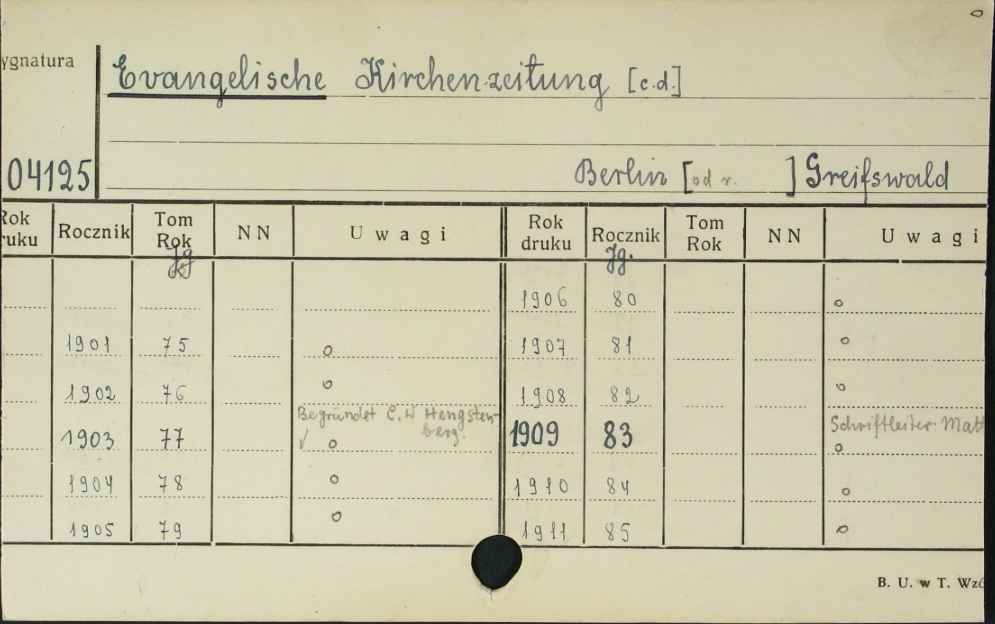 ygnatura
Evangelische Kirchenzeitung [c.d.]
04125
Berlin [od r. ] Greifswald
Rok ruku Rocznik Tom Rok NN Uwagi Rok druku Rocznik Tom Rok NN Uwagi
Jg Jg.
1906 80 o
1901 75 o 1907 81 o
1902 76 o 1908 82 o
Begründet C. W Hengsten-
berg.
Schriftleiter Mat
1903 77 √ o 1909 83 o
1904 78 o 1910 84 o
1905 79 o 1911 85 o
B. U. w T. Wzó